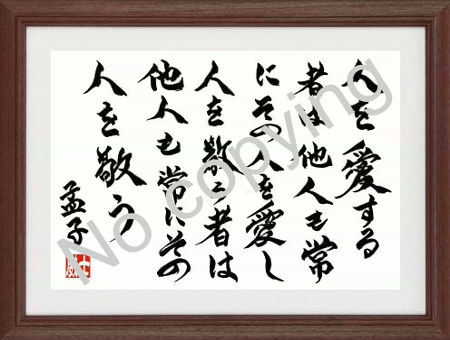 人を愛する
者は他人も常
にその人を愛し
人を敬う者は
他人も常にその
人を敬う
孟子
No copying